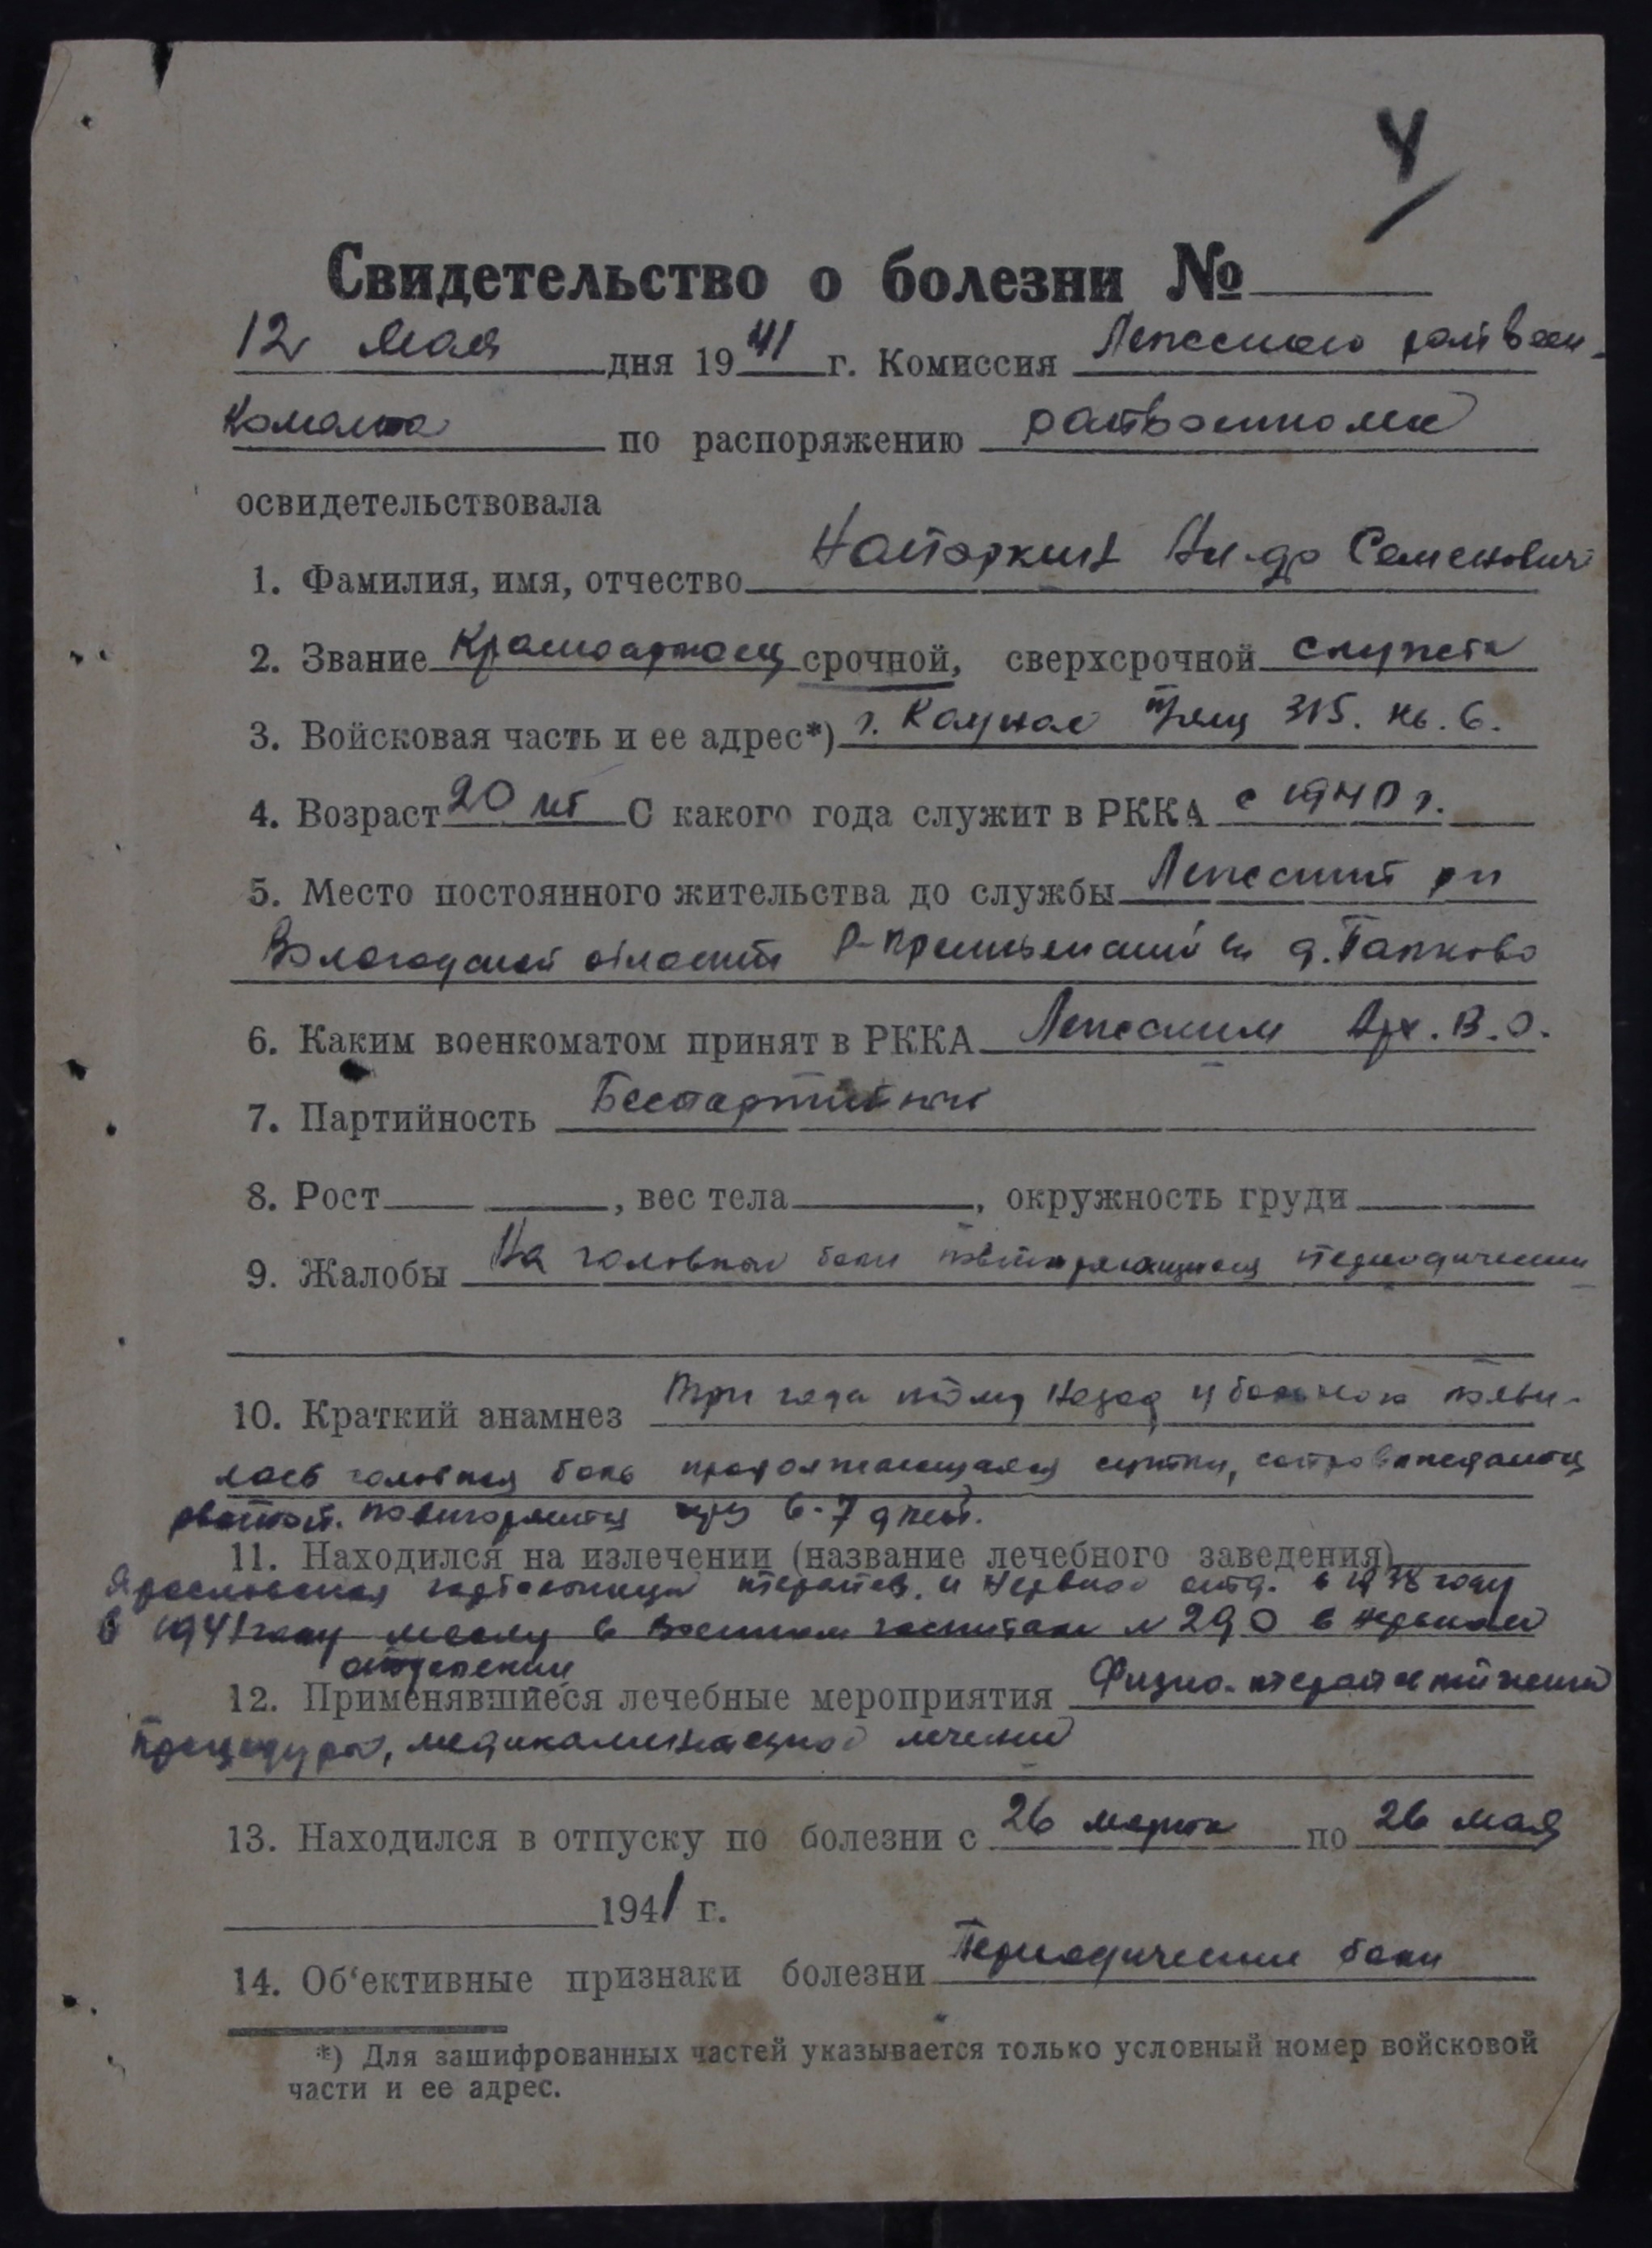 4
Свидетельство о болезни №
12 мая дня 1941 г. Комиссия Лежского райвоен-
комата по распоряжению райвоенкома
освидетельствовала
1. Фамилия, имя, отчество Ал-др Семенович
2. Звание Красноармеец срочной, сверхсрочной службы
3. Войсковая часть и ее адрес*) г. Каунас п/ящ 315. кв. 6.
4. Возраст 20 лет С какого года служит в РККА с 1940 г.
5. Место постоянного жительства до службы Лежский р-н
Вологодской области д. Папково
6. Каким военкоматом принят в РККА Лежским Арх. В.О.
7. Партийность Беспартийный
8. Рост , вес тела , окружность груди
9. Жалобы На головные боли повторяющиеся периодически
10. Краткий анамнез Три года тому назад у больного появи-
лась головная боль продолжающаяся сутки, сопровождается
рвотой. повторяется через 6-7 дней.
11. Находился на излечении (название лечебного заведения)
Ярославская в 1938 году
В 1941 году в Военном госпитале № 290 в нервном
отделении
12. Применявшиеся лечебные мероприятия Физио-терапевтические
процедуры, медикаментозное лечение
13. Находился в отпуску по болезни с 26 марта по 26 мая
1941 г.
14. Об‘ективные признаки болезни Периодические боли
*) Для зашифрованных частей указывается только условный номер войсковой
части и ее адрес.